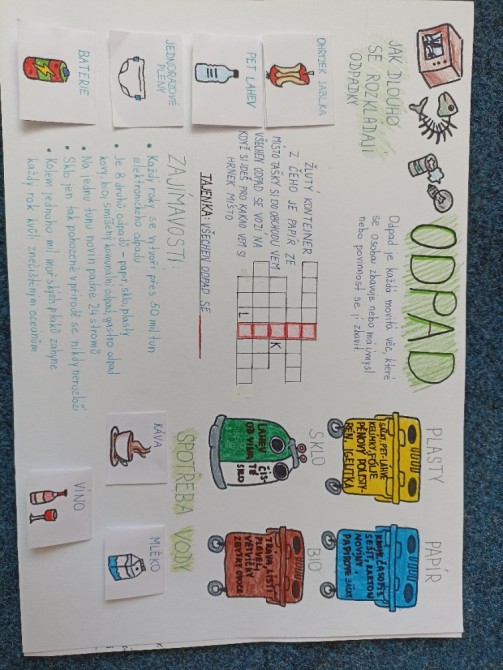 ODPAD
Odpad je každá movitá věc, které
se osoba zbavuje nebo má úmysl
nebo povinnost se jí zbavit
JAK DLOUHO
SE ROZKLÁDAJÍ
ODPADKY
OHRYZEK JABLKA
PET LAHEV
JEDNORÁZOVÉ
PLENY
BATERIE
ŽLUTÝ KONTEJNER
Z ČEHO JE PAPÍR ZE
MÍSTO TAŠKY SI DO OBCHODU VEM
VŠECHEN ODPAD SE VOZÍ NA
KDYŽ SI JDEŠ PRO KAKAO VEM SI
HRNEK MÍSTO
K
L
TAJENKA: VŠECHEN ODPAD SE
ZAJÍMAVOSTI:
• Každý rok se vytvoří přes 50 mil tun
elektronického odpadu
• Je 8 druhů odpadů - papír, sklo, plasty
kovy, bio, směsný komunální odpad, gastro odpad
• Na jednu tunu novin padne 24 stromů
• Sklo jen tak pohozené v přírodě se nikdy nerozloží
• Kolem jednoho mil mořských ptáků zahyne
každý rok kvůli znečištěným oceánům
PLASTY
SÁČKY, PET-LÁHVE
KELÍMKY, FÓLIE
PĚNOVÝ POLYSTY-
REN, IGELITKA
PAPÍR
KNIHY, ČASOPIS
SEŠIT, KARTON
NOVINY
PAPÍROVÉ SÁČKY
SKLO
LAHEV
OD VÍNA
ČIS-
TÉ
SKLO
BIO
TRÁVA, LISTÍ
PLEVEL
VĚTVIČKY
ZBYTKY OVOCE
SPOTŘEBA VODY
KÁVA
MLÉKO
VÍNO